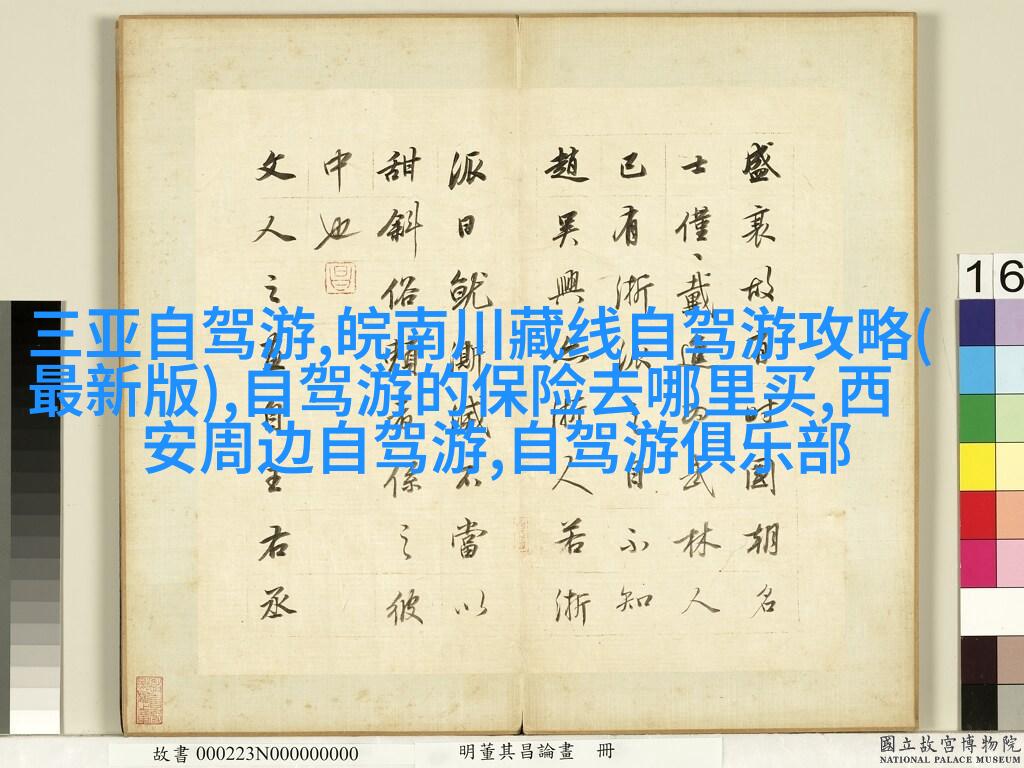 盛衰故有時國朝名
士僅戴進為武林人
已有浙派之目不知
趙吳興亦浙人若浙
派日就澌滅不當以
甜斜俗賴者係之彼
中也
文人之畫自王右丞
三亚自驾游,皖南川藏线自驾游攻略(
最新版),自驾游的保险去哪里买,西
安周边自驾游,自驾游俱乐部
16
故書 000223N000000000
明董其昌論畫 冊
國立故宮博物院
NATIONAL PALACE MUSEUM